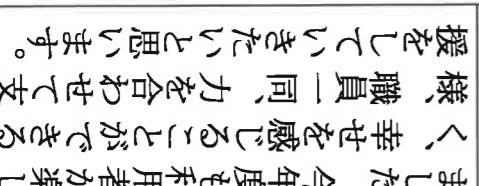 ました。今年度も利用者が楽し
く、幸せを感じることができる
様、職員一同、力を合わせて支
援をしていきたいと思います。